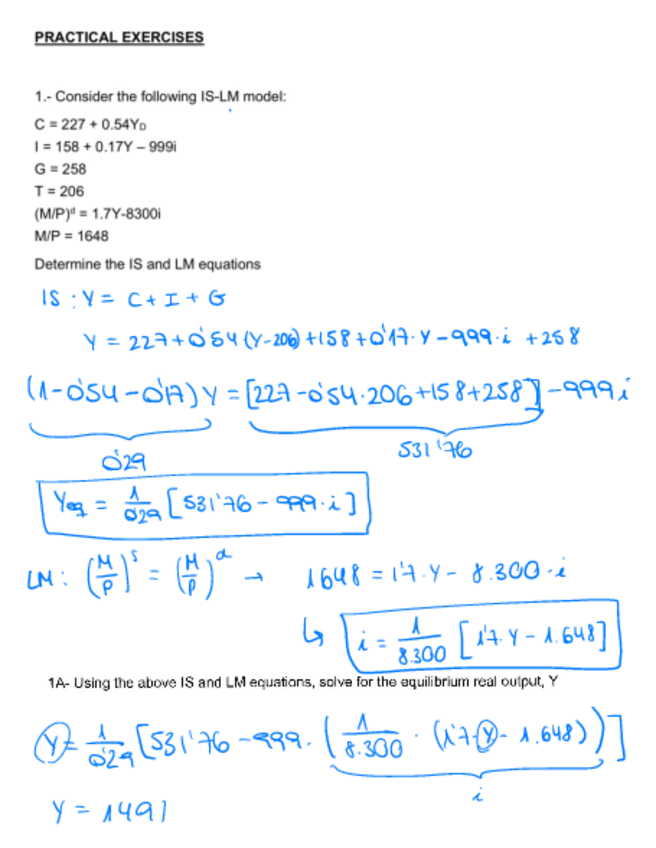 PRACTICAL EXERCISES
1.- Consider the following IS-LM model:
C = 227 + 0.54Y_D
I = 158 + 0.17Y – 999i
G = 258
T = 206
(M/P)^d = 1.7Y-8300i
M/P = 1648
Determine the IS and LM equations
IS : Y = C + I + G
Y = 227 + 0'54 (Y-206) + 158 + 0'17·Y - 999·i + 258
(1-0'54-0'17) Y = [227-0'54·206+158+258] - 999 i
0'29 531'76
Yeq = 1/0'29 [531'76 - 999·i]
LM : (M/P)^s = (M/P)^d → 1648 = 1'7·Y - 8.300·i
↳ i = 1/8.300 [1'7·Y - 1.648]
1A- Using the above IS and LM equations, solve for the equilibrium real output, Y
Y = 1/0'29 [531'76 - 999· (1/8.300 · (1'7·Y - 1.648))]
i
Y = 1491